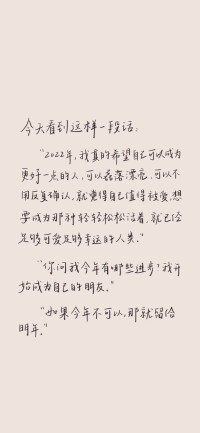 今天看到这样一段话：
"2022年，我真的希望自己可以成为
更好一点的人，可以磊落漂亮，可以不
用反复确认，就觉得自己值得被爱，想
要成为那种轻轻松松活着，就已经
足够可爱足够幸运的人类。"
"你问我今年有哪些进步？我开
始成为自己的朋友。"
"如果今年不可以，那就留给
明年。"